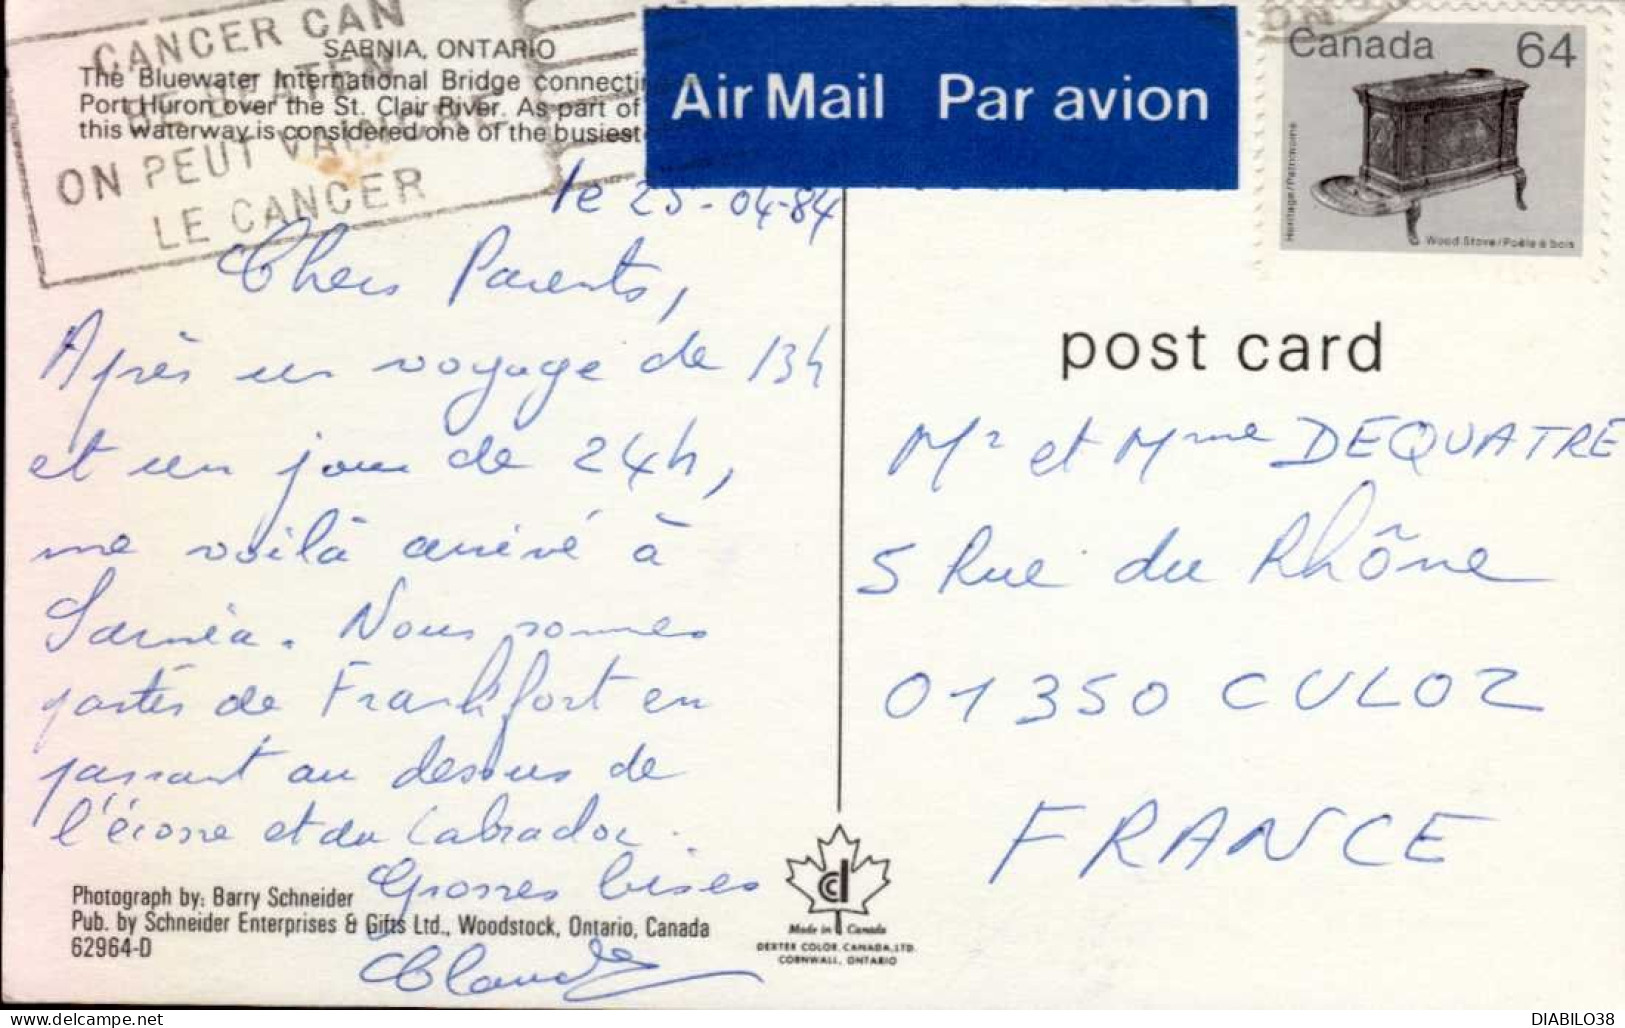 CANCER CAN
BE BEATEN
ON PEUT VAINCRE
LE CANCER
SARNIA, ONTARIO
The Bluewater International Bridge connecti
Port Huron over the St. Clair River. As part of
this waterway is considered one of the busiest
Air Mail Par avion
Canada 64
Heritage/Patrimoine
Wood Stove/Poêle à bois
le 25-04-84
Chers Parents,
Après un voyage de 13h
et un jour de 24h,
me voilà arrivé à
Sarnia. Nous sommes
partis de Frankfort en
passant au dessus de
l'écosse et du Labrador.
Grosses bises
Claude
post card
Mr et Mme DEQUATRE
5 Rue du Rhône
01350 CULOZ
FRANCE
Photograph by: Barry Schneider
Pub. by Schneider Enterprises & Gifts Ltd., Woodstock, Ontario, Canada
62964-D
Made in Canada
DEXTER COLOR CANADA LTD.
CORNWALL, ONTARIO
DIABILO38